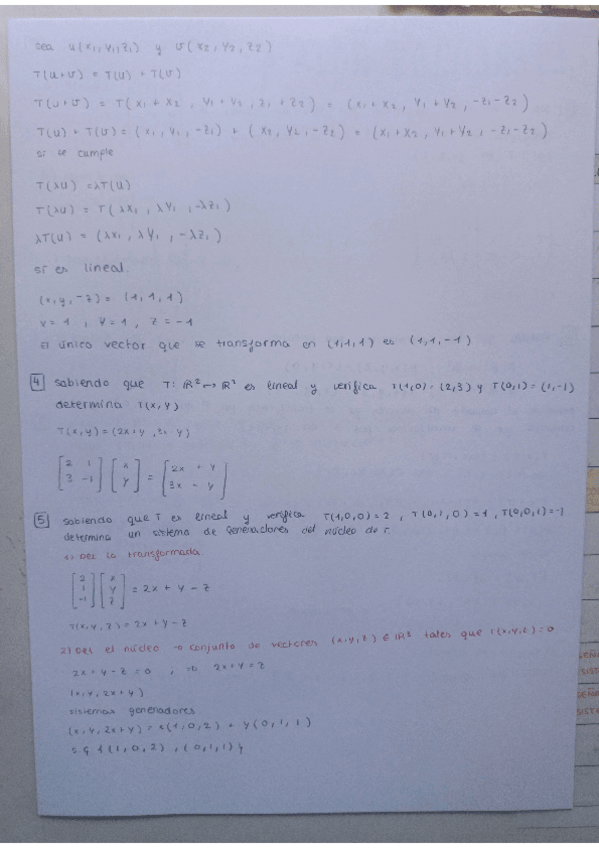 sea u(x₁,y₁,z₁) y v(x₂,y₂,z₂)
T(u+v) = T(u) + T(v)
T(u+v) = T(x₁+x₂, y₁+y₂, z₁+z₂) = (x₁+x₂, y₁+y₂, -z₁-z₂)
T(u)+T(v) = (x₁, y₁, -z₁) + (x₂, y₂, -z₂) = (x₁+x₂, y₁+y₂, -z₁-z₂)
sí se cumple
T(λu) = λT(u)
T(λu) = T(λx₁, λy₁, -λz₁)
λT(u) = (λx₁, λy₁, -λz₁)
sí es lineal.
(x,y,-z) = (1,1,1)
x=1, y=1, z=-1
El único vector que se transforma en (1,1,1) es (1,1,-1)
4 sabiendo que T: ℝ² → ℝ² es lineal y verifica T(1,0)=(2,3) y T(0,1)=(1,-1)
determina T(x,y)
T(x,y)=(2x+y, 3x-y)
[2 1; 3 -1] [x; y] = [2x + y; 3x - y]
5 sabiendo que T es lineal y verifica T(1,0,0)=2, T(0,1,0)=1, T(0,0,1)=-1
determina un sistema de generadores del núcleo de T.
1) Det la transformada
[2; 1; -1] [x; y; z] = 2x + y - z
T(x,y,z)=2x+y-z
2) Det el núcleo → conjunto de vectores (x,y,z) ∈ ℝ³ tales que T(x,y,z)=0
2x+y-z=0, => 2x+y=z
(x,y,2x+y)
sistemas generadores
(x,y,2x+y)=x(1,0,2)+y(0,1,1)
s.g {(1,0,2),(0,1,1)}